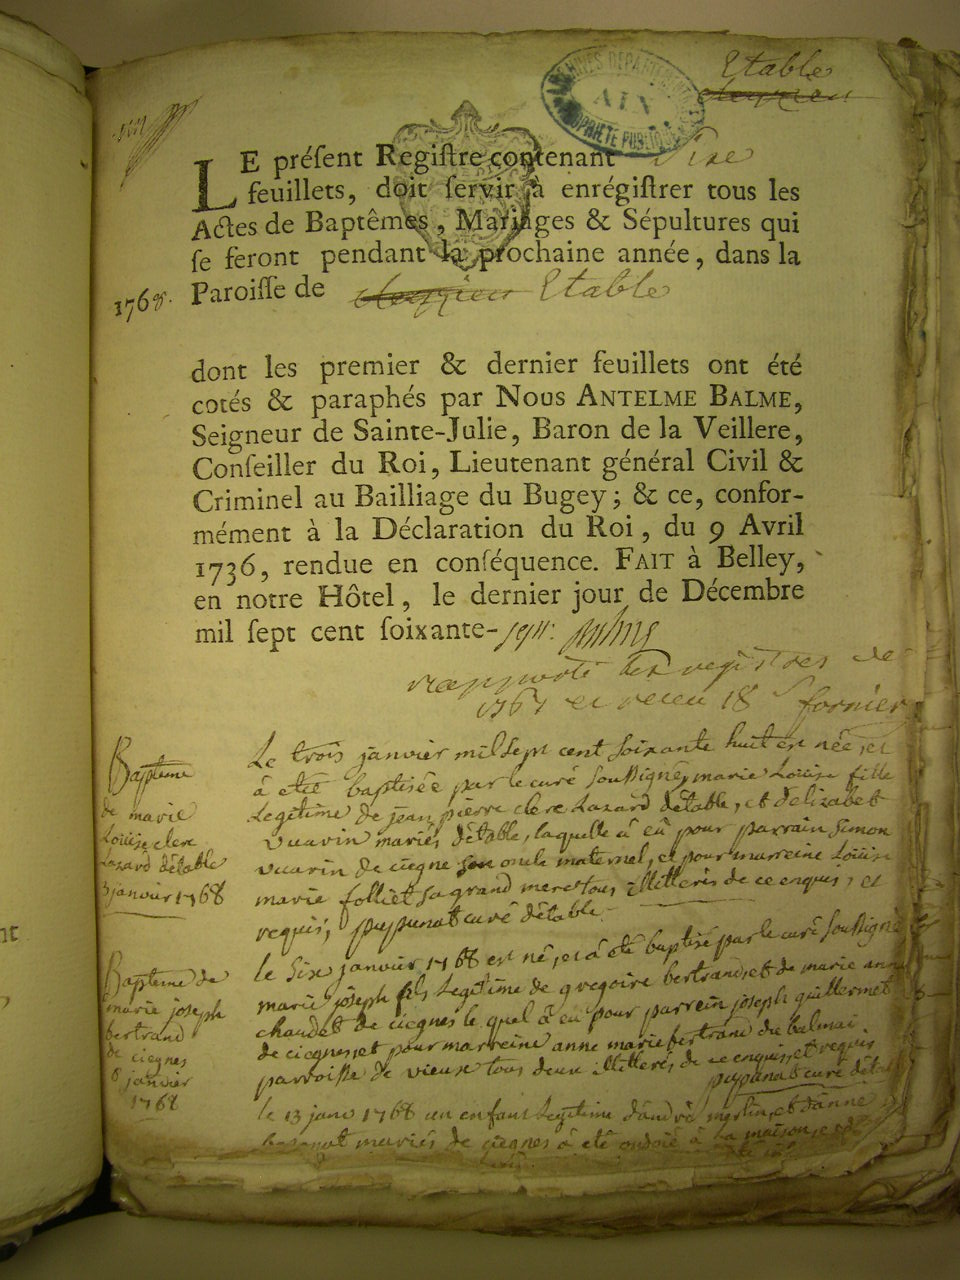 Etable
ARCHIVES DEPARTEMENTALES
AIN
PROPRIETE PUBLIQUE
LE préſent Regiſtre contenant Sixe
feuillets, doit ſervir à enrégiſtrer tous les
Actes de Baptêmes, Mariages & Sépultures qui
ſe feront pendant la prochaine année, dans la
1768. Paroiſſe de Etable
dont les premier & dernier feuillets ont été
cotés & paraphés par NOUS ANTELME BALME,
Seigneur de Sainte-Julie, Baron de la Veillere,
Conſeiller du Roi, Lieutenant général Civil &
Criminel au Bailliage du Bugey; & ce, confor-
mément à la Déclaration du Roi, du 9 Avril
1736, rendue en conſéquence. FAIT à Belley,
en notre Hôtel, le dernier jour de Décembre
mil ſept cent ſoixante-ſept:
rapporté les registres de
1767 et receu 18 s fornier
Bapteme
de marie
Louise clerc
Lazard détable
3 janvier 1768
Le trois janvier mil sept cent soixante huit est née, et
à eté baptisée par le curé soussigné, marie Louise fille
Legitime de jean pierre clerc Lazard détable, et délizabet
vuarin mariés détable, laquelle à eu pour parrain simon
vuarin de ciegne son oncle maternel, et pour marreine Louise
marie folliet sa grand mere tous illitterés de ce enquis, et
requis, pupunat curé détable.
Bapteme de
marie joseph
bertrand
de ciegnes
6 janvier
1768
le Sixe janvier 1768 est né, et à été baptisé par le curé soussigné
marie joseph fils Legitime de gregoire bertrand, et de marie anne
chaudet de ciegnes le quel à eu pour parrein joseph quillermet
de ciegnes, et pour marreine anne marie bertrand du balmai.
parroisse de vieux tous deux illitterés de ce enquis, et requis
pupunat curé
le 13 janv 1768 un enfant Legitime d'andré merlin, et d'anne
mariés de ciegnes à eté ondoié à la maison